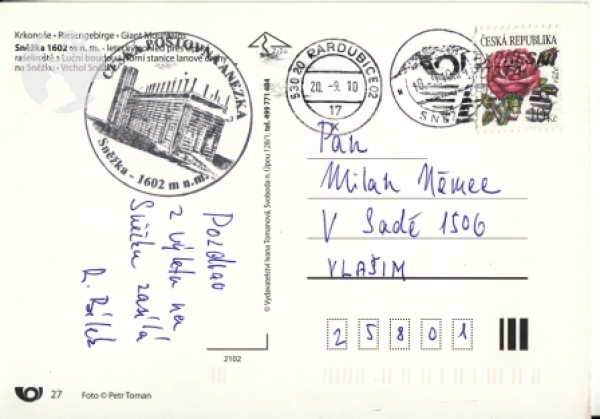 Krkonoše • Riesengebirge • Giant Mountains
Sněžka 1602 m n. m. - letecký pohled přes úpské
rašeliniště s Luční boudou
horní stanice lanové dráhy
na Sněžku - Vrchol Sněžky
ČESKÁ POŠTOVNA ANEŽKA
Sněžka - 1602 m n.m.
530 20 PARDUBICE 02
20. -9. 10
17
x
ČESKÁ REPUBLIKA
10 Kč
© Vydavatelství Ivana Tomanová, Svoboda n. Úpou 128/1, tel. 499 771 484
Pozdrav
z výletu na
Sněžku zasílá
R. Bílek
Pan
Milan Němec
V Sadě 1506
VLAŠIM
2 5 8 0 1
2102
27 Foto © Petr Toman